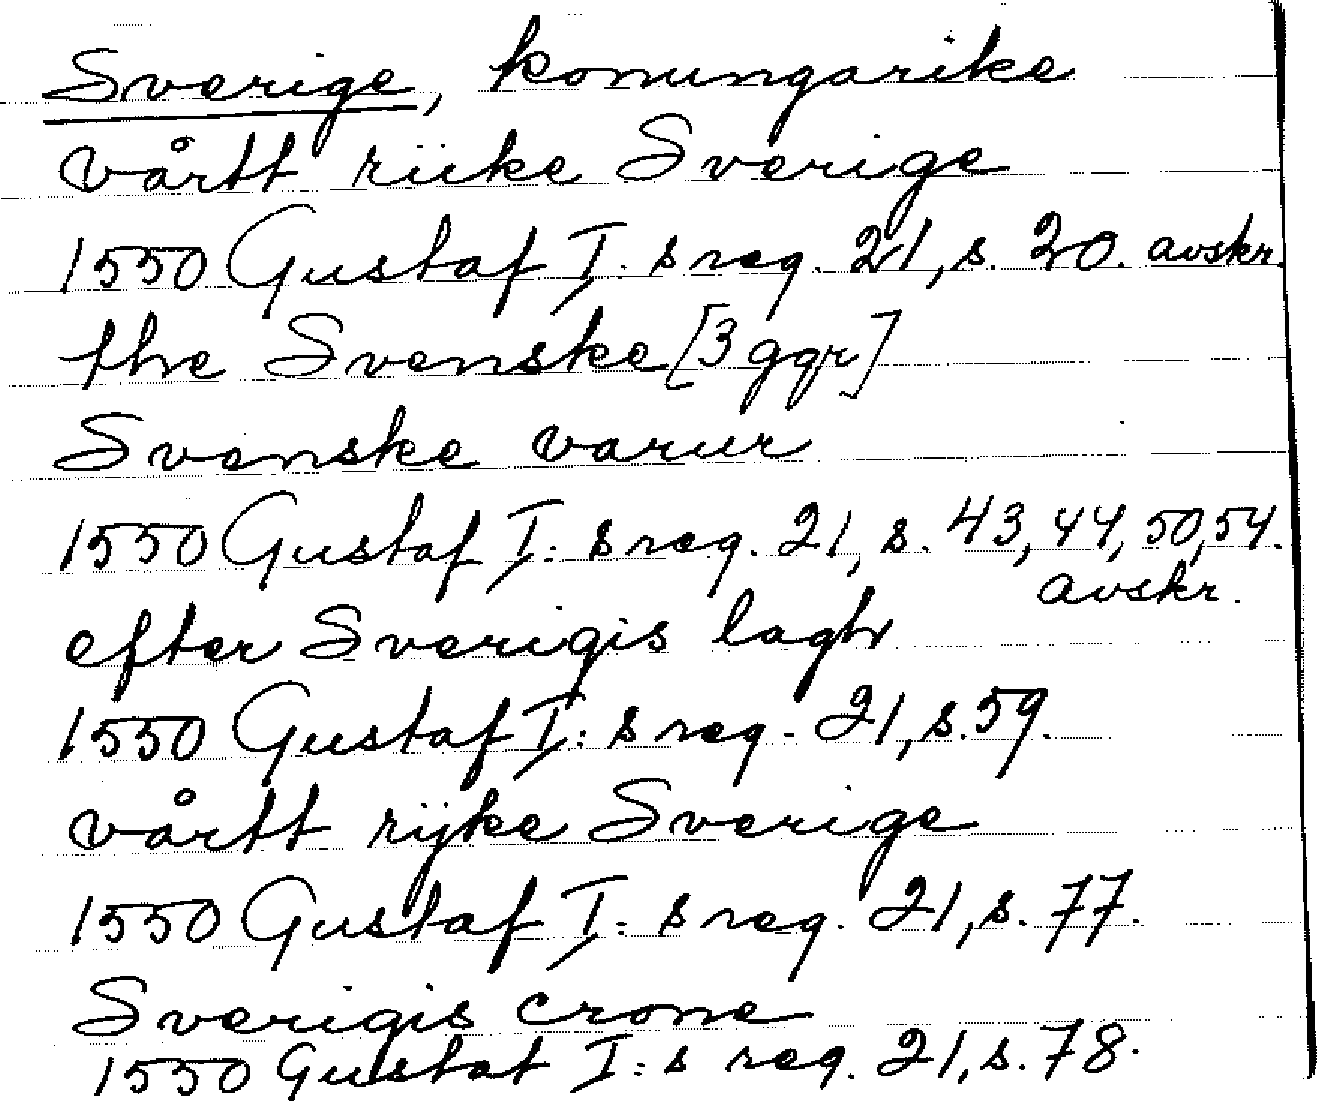 Sverige, konungarike
vårtt riike Sverige
1550 Gustaf I:s reg. 21, s. 20. avskr.
the Svenske [3 ggr]
Svenske varur
1550 Gustaf I:s reg. 21, s. 43, 44, 50, 54.
avskr.
efter Sverigis lagh
1550 Gustaf I:s reg. 21, s. 59.
vårtt rijke Sverige
1550 Gustaf I:s reg. 21, s. 77.
Sverigis crone
1550 Gustaf I:s reg. 21, s. 78.